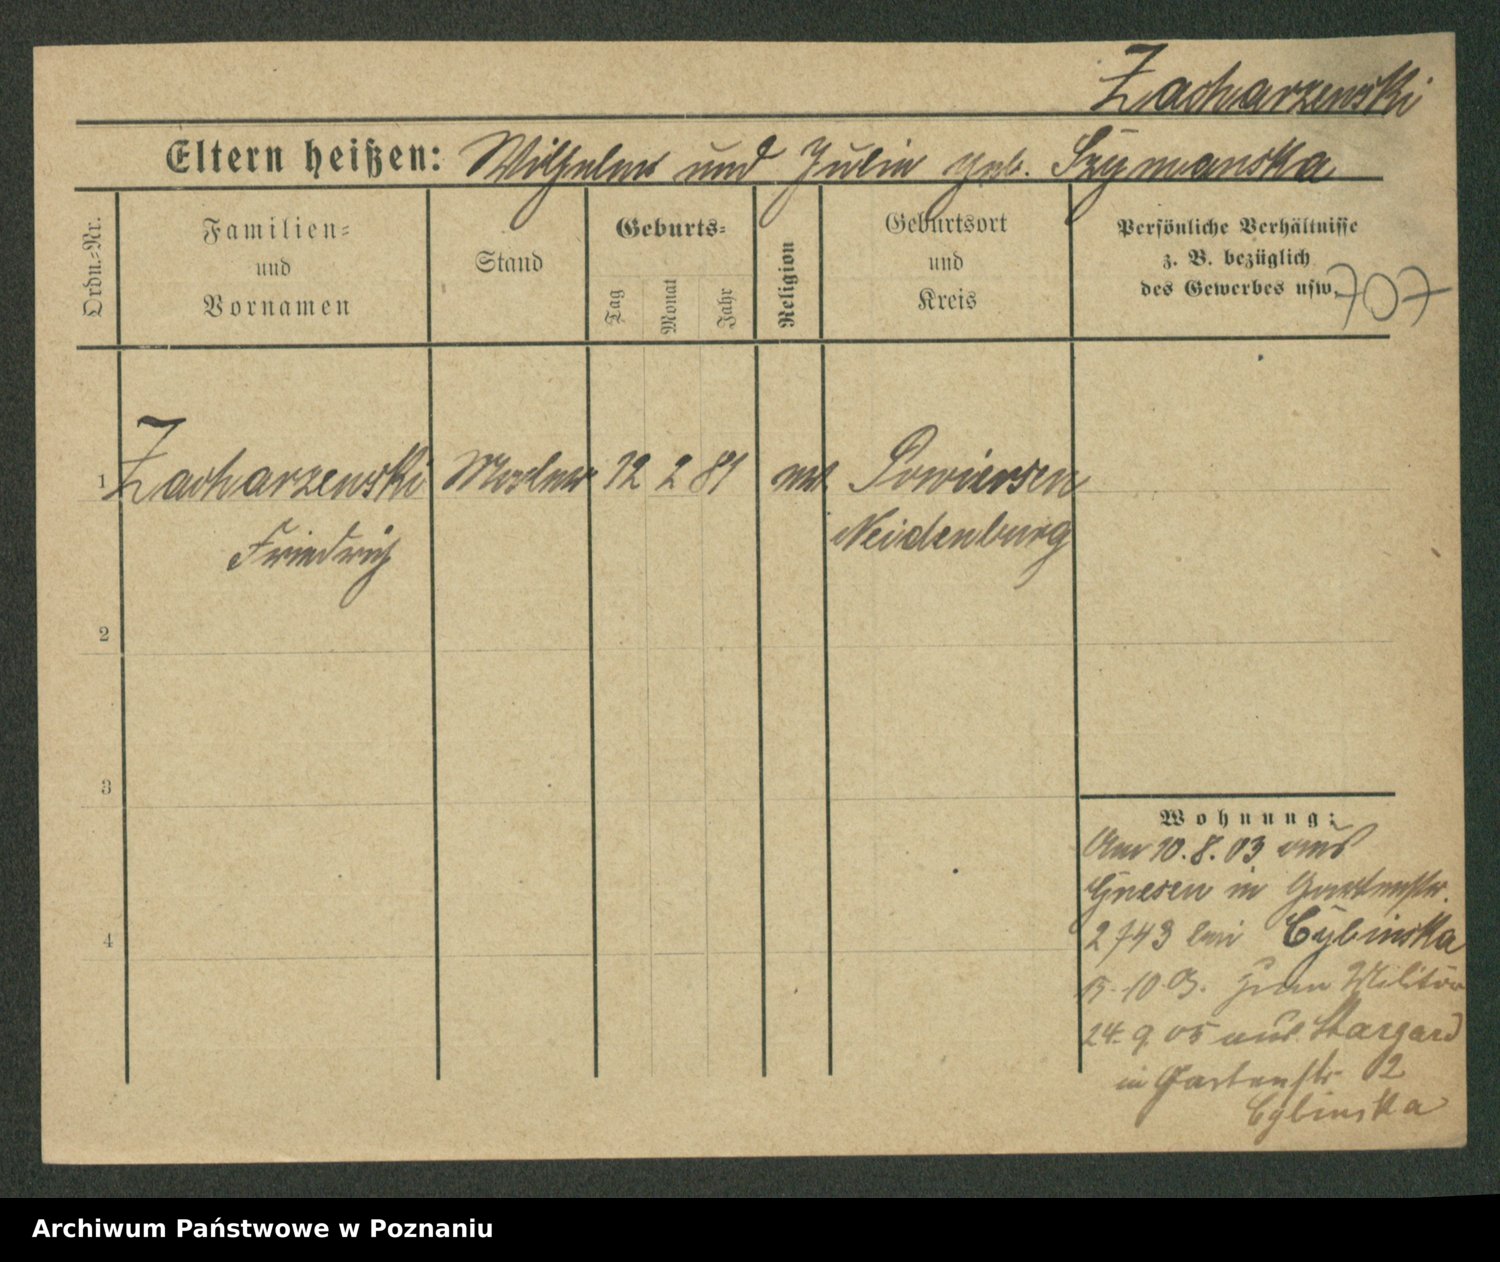 Zacharzewski
Eltern heißen: Wilhelm und Julie geb. Szymanska
Ordn.-Nr.
Familien-
und
Vornamen
Stand
Geburts-
Tag
Monat
Jahr
Religion
Geburtsort
und
Kreis
Persönliche Verhältnisse
z. B. bezüglich
des Gewerbes usw.
707
1 Zacharzewski 12 2 81
Neidenburg
Friedrich
2
3
4
Wohnung:
Am 10.8.03 aus
Gnesen in Gartenstr.
2 bei Cybinska
zum Militär
24. 9 05 aus Stargard
in Gartenstr. 2
Cybinska
Archiwum Państwowe w Poznaniu